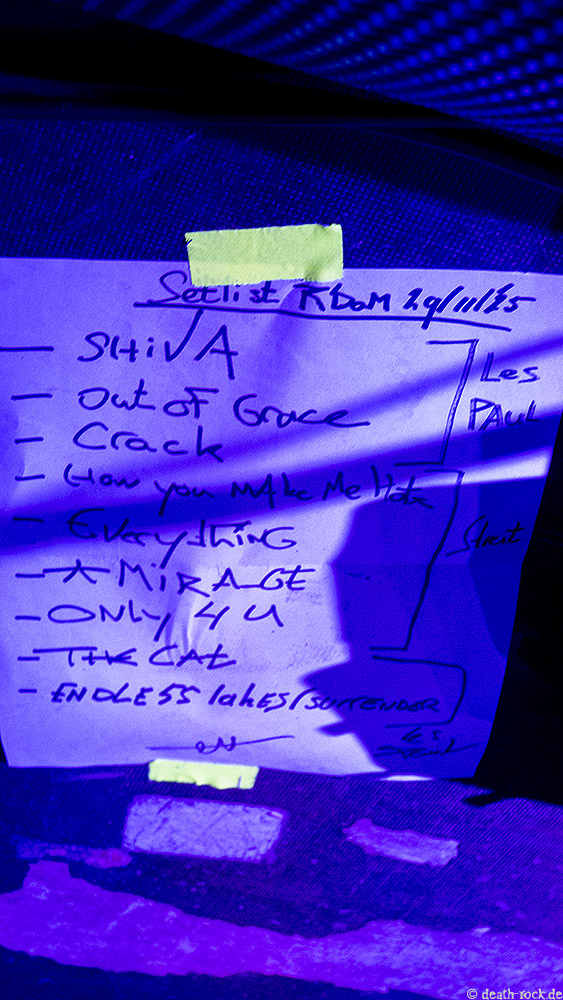 Setlist RDOM 29/11/25
- SHiVA
- Out of Grace
- Crack
- How you MAke Me Hate
- EVerythiNG
- A MIRAGE
- ONLy 4 U
- THE CAt
- ENDLESS lakes/SURRENDER
Les
PAUL
Strat
Les
© death-rock.de